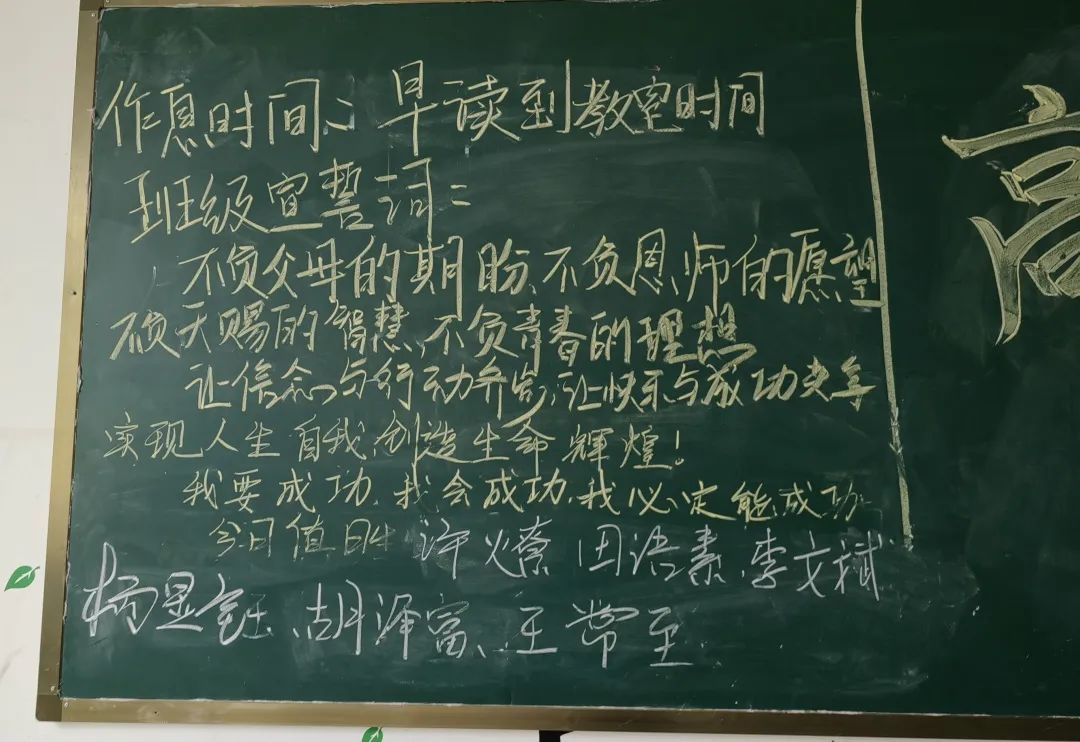 作息时间：早读到教室时间
班级宣誓词：
不负父母的期盼、不负恩师的愿望
不负天赐的智慧，不负青春的理想
让信念与行动齐崇，让快乐与成功共享
实现人生自我，创造生命辉煌！
我要成功，我会成功，我必定能成功
今日值日生 许燎 田语素、李文斌
杨显钰、胡泽富、王常至
高